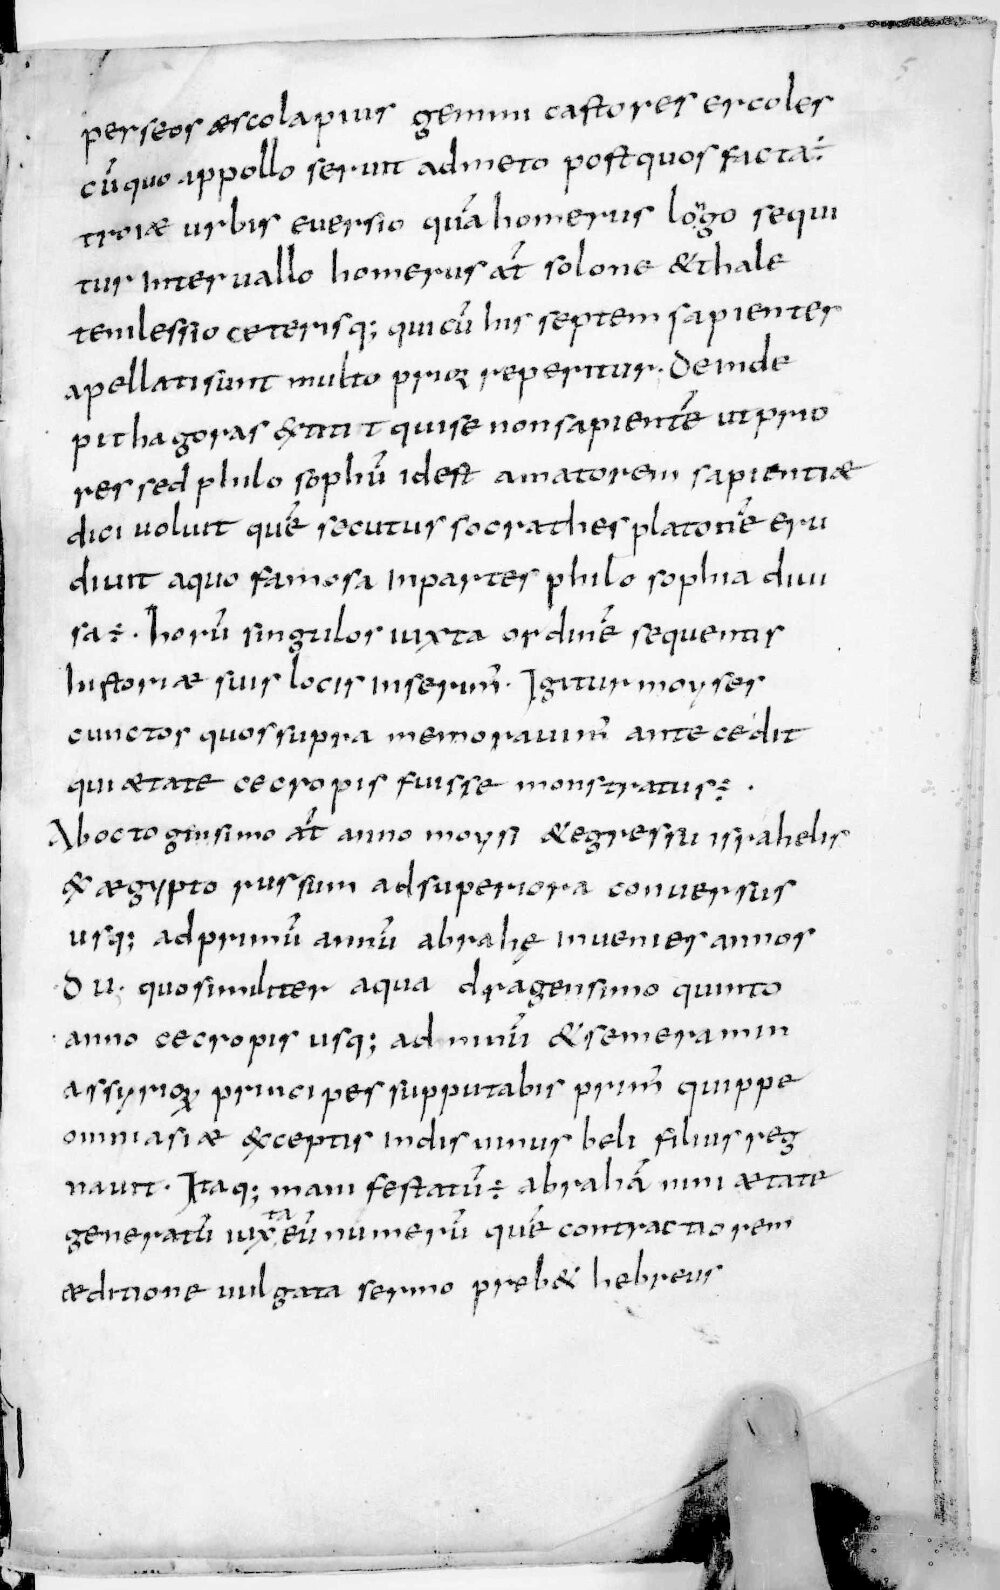 5
perseos æscolapius gemini castores ercoles
cū quo appollo seruit admeto post quos facta ÷
troiæ urbis euersio quā homerus longo sequi
tur interuallo homerus aūt solone & thale
temilessio ceterisq; qui cū his septem sapienter
apellati sunt multo prioꝝ reperitur. Deinde
pithagoras extitit qui se non sapientē ut prio
res sed philosophū id est amatorem sapientiæ
dici voluit quē secutus socrathes platonē eru
diuit a quo famosa in partes philosophia diui
sa ÷. horū singulos iuxta ordinē sequentis
historiæ suis locis inserim̄. Igitur moyses
cunctos quos supra memorauim̄ antecedit
qui ætate cecropis fuisse monstratus ÷.
Ab octoginsimo aūt anno moysi & egressu israhelis
ex ægypto rursum ad superiora conuersus
usq; ad primū annū abrahę inuenies annos
.DV. quos similiter a quadragensimo quinto
anno cecropis usq; ad ninū & semeramin
assyrioꝝ principes supputabis prim̄ quippe
omni asiæ exceptis indis ninus beli filius reg
nauit. Itaq; manifestatū ÷ abrahā nini ætate
generatū iuxta eū numerū quē contractiorem
æditione uulgata sermo preb& hebreus